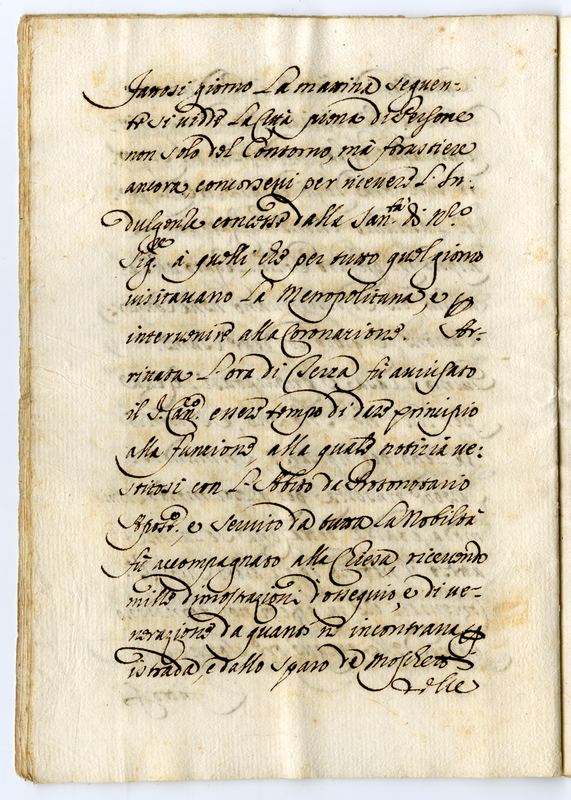 Fattosi giorno La matina sequen-
te si vidde La Città piena di Persone
non solo del Contorno, mà forastiere
ancora, concorse qui per ricevere L'In-
dulgenza concessa dalla San.tà di N.ro
Sig.re à quelli, che per tutto quel giorno
visitavano La Metropolitana, e p
intervenire alla Coronazione. Ar-
rivata L'ora di Terza fù avvisato
il S. Can.co essere tempo di dare principio
alla funzione alla quale notizia ve-
stitosi con L'Abito da Protonotario
Apost.co e servito da tutta La Nobiltà
fù accompagnato alla Chiesa, ricevendo
mille dimostrazioni d'ossequio, e di ve-
nerazione da quanti ne incontrava p
istrada, e dallo sparo de Moschetti
delle